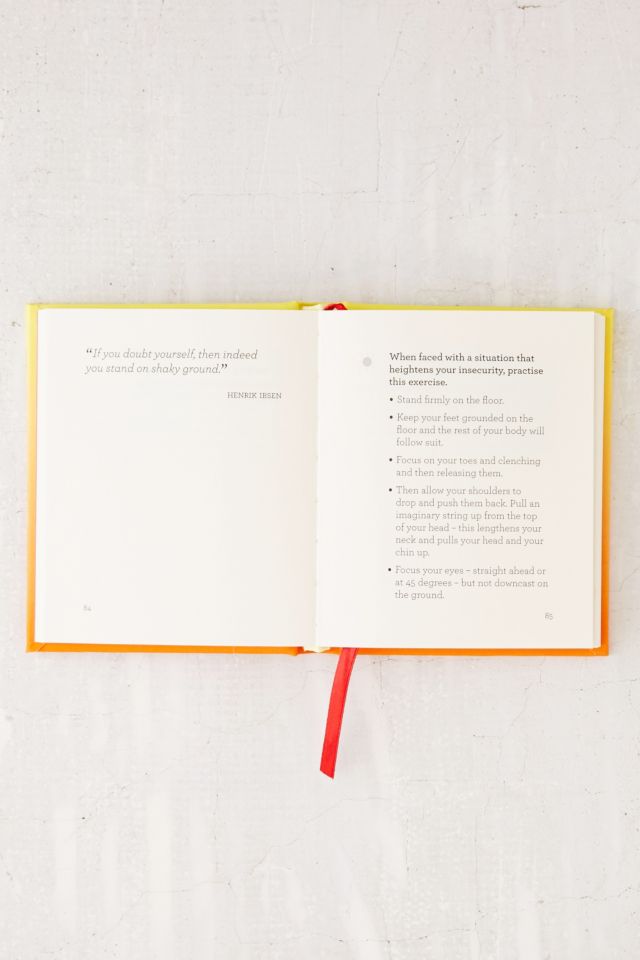 “If you doubt yourself, then indeed
you stand on shaky ground.”
HENRIK IBSEN
84
When faced with a situation that
heightens your insecurity, practise
this exercise.
• Stand firmly on the floor.
• Keep your feet grounded on the
floor and the rest of your body will
follow suit.
• Focus on your toes and clenching
and then releasing them.
• Then allow your shoulders to
drop and push them back. Pull an
imaginary string up from the top
of your head – this lengthens your
neck and pulls your head and your
chin up.
• Focus your eyes – straight ahead or
at 45 degrees – but not downcast on
the ground.
85